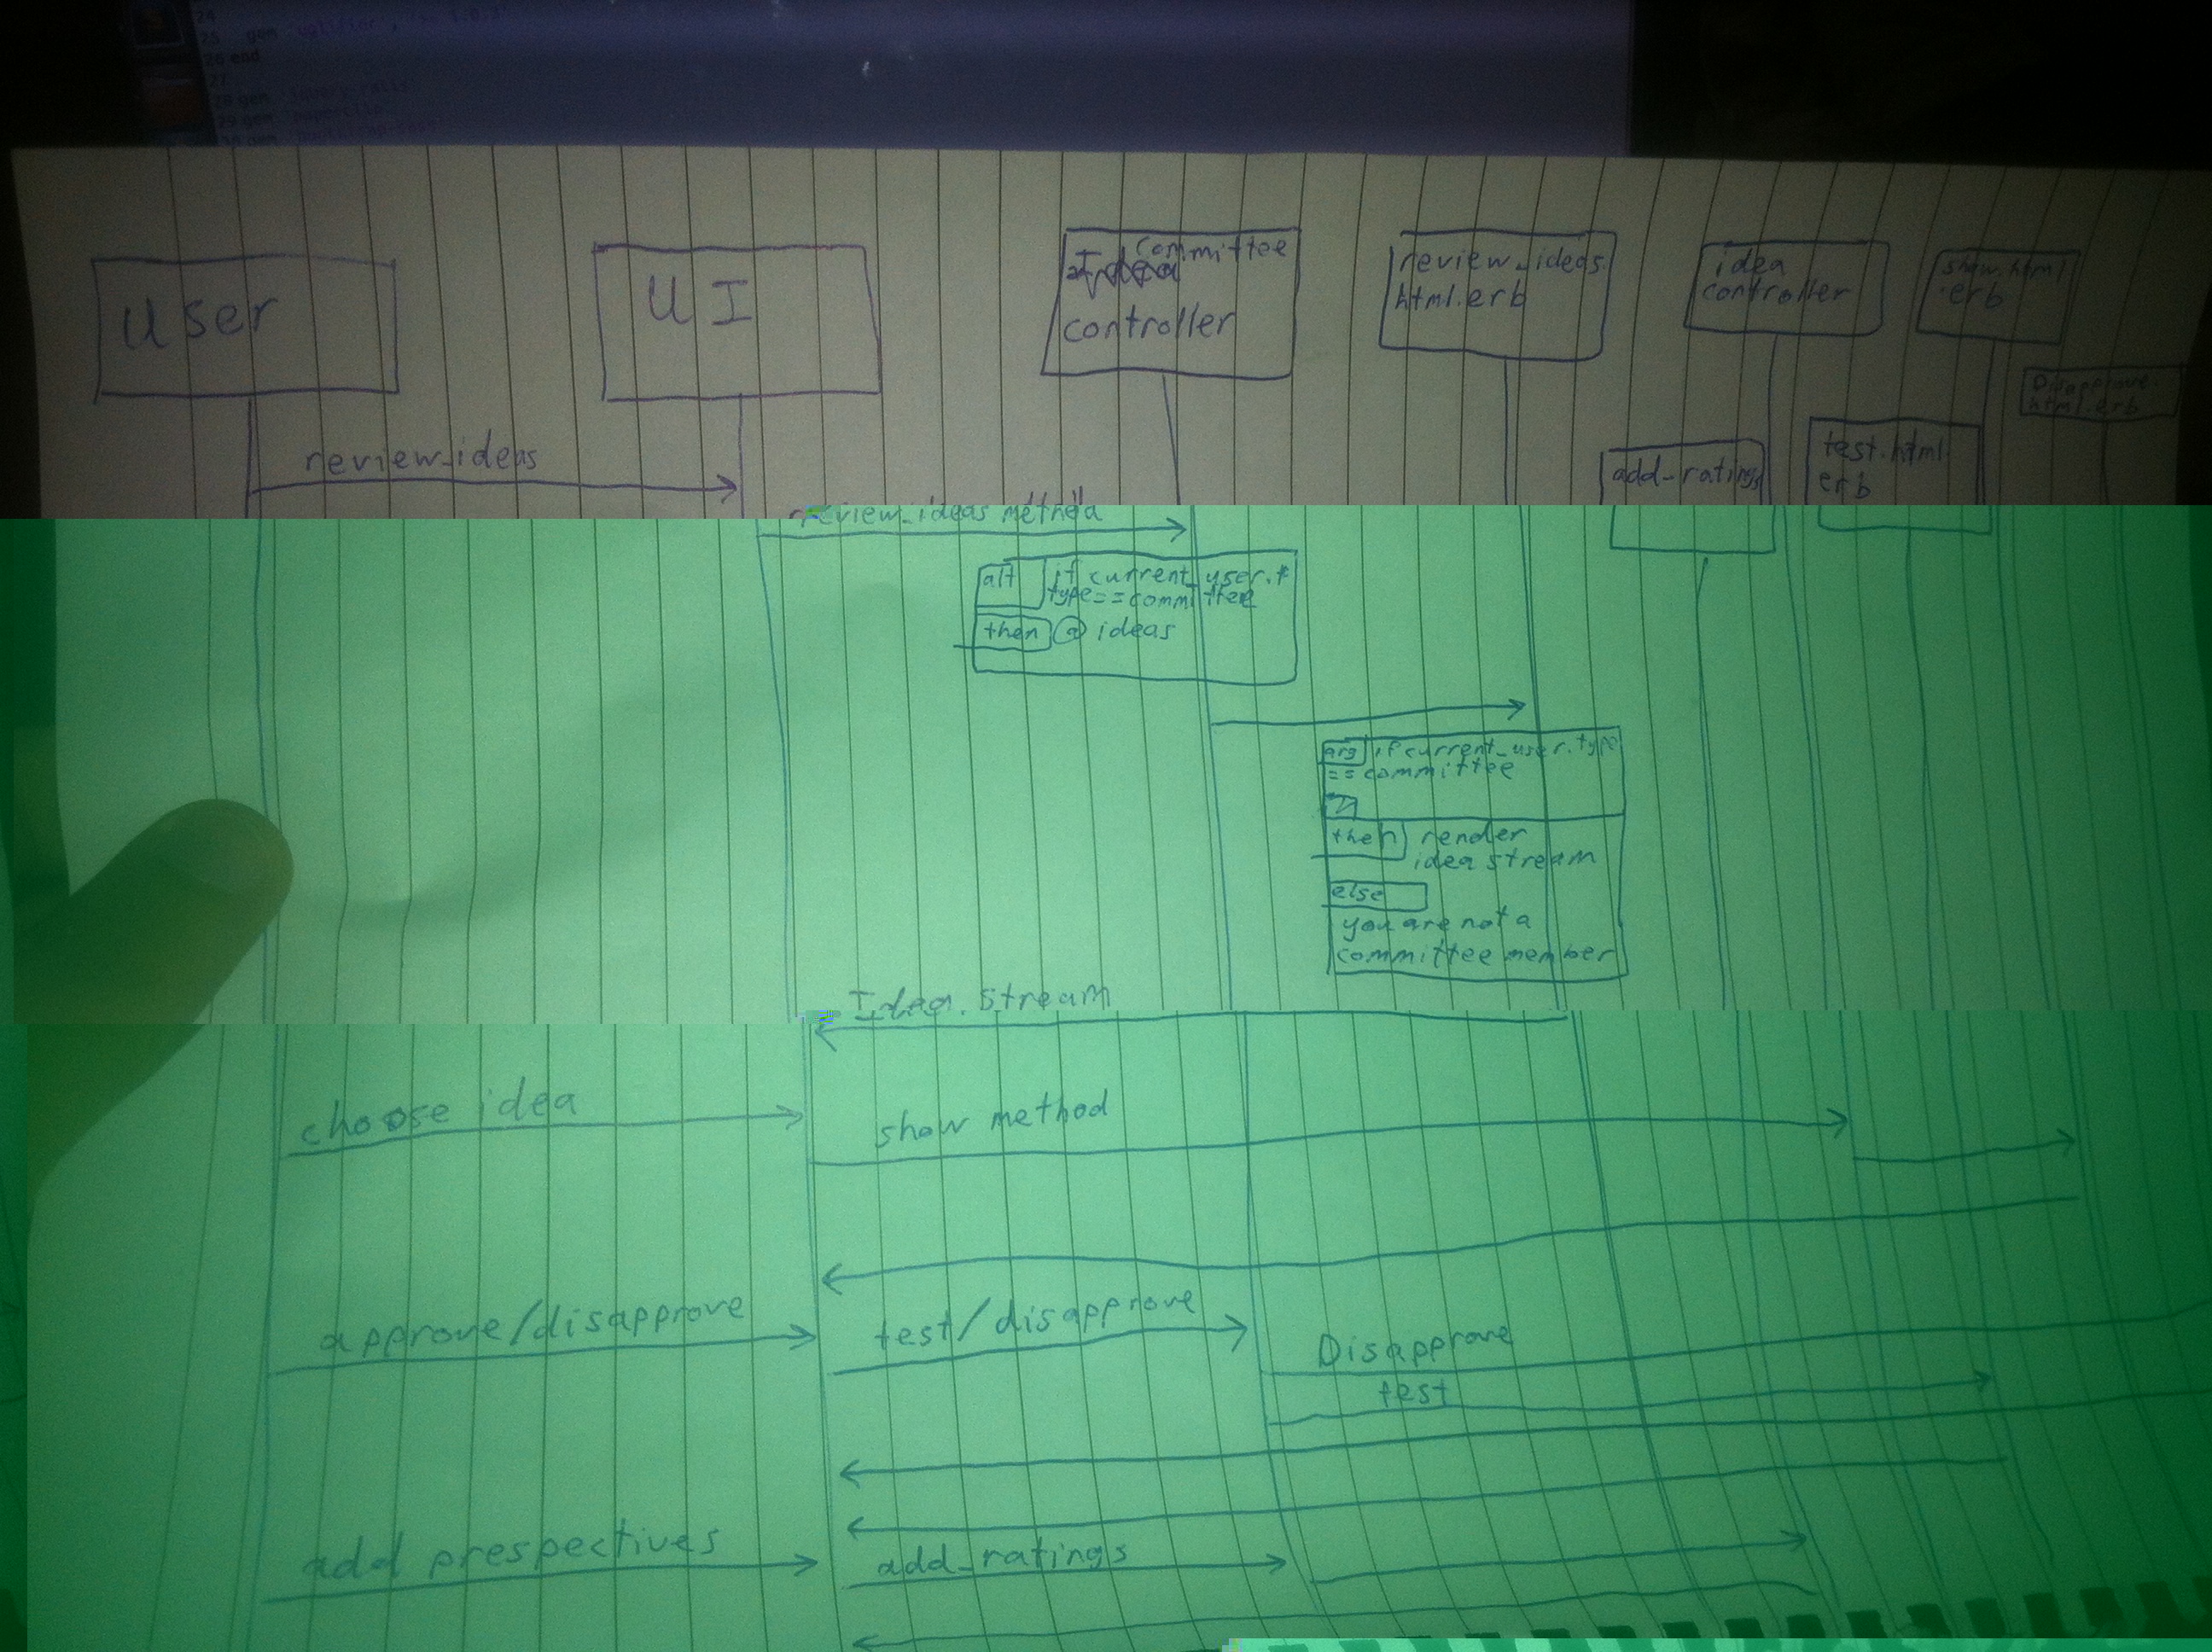 24
25 gem
26 end
27
29 gem
User
UI
Committee
controller
review_ideas.
html.erb
idea
controller
show.html
.erb
Disapprove.
html.erb
add_ratings
test.html.
erb
review_ideas
review_ideas method
alt if current_user.t
type==committee
then @ ideas
arg if current_user.type
== committee
then render
idea stream
else
you are not a
committee member
Idea stream
choose idea
show method
approve/disapprove
test/disapprove
Disapprove
test
add prespectives
add_ratings